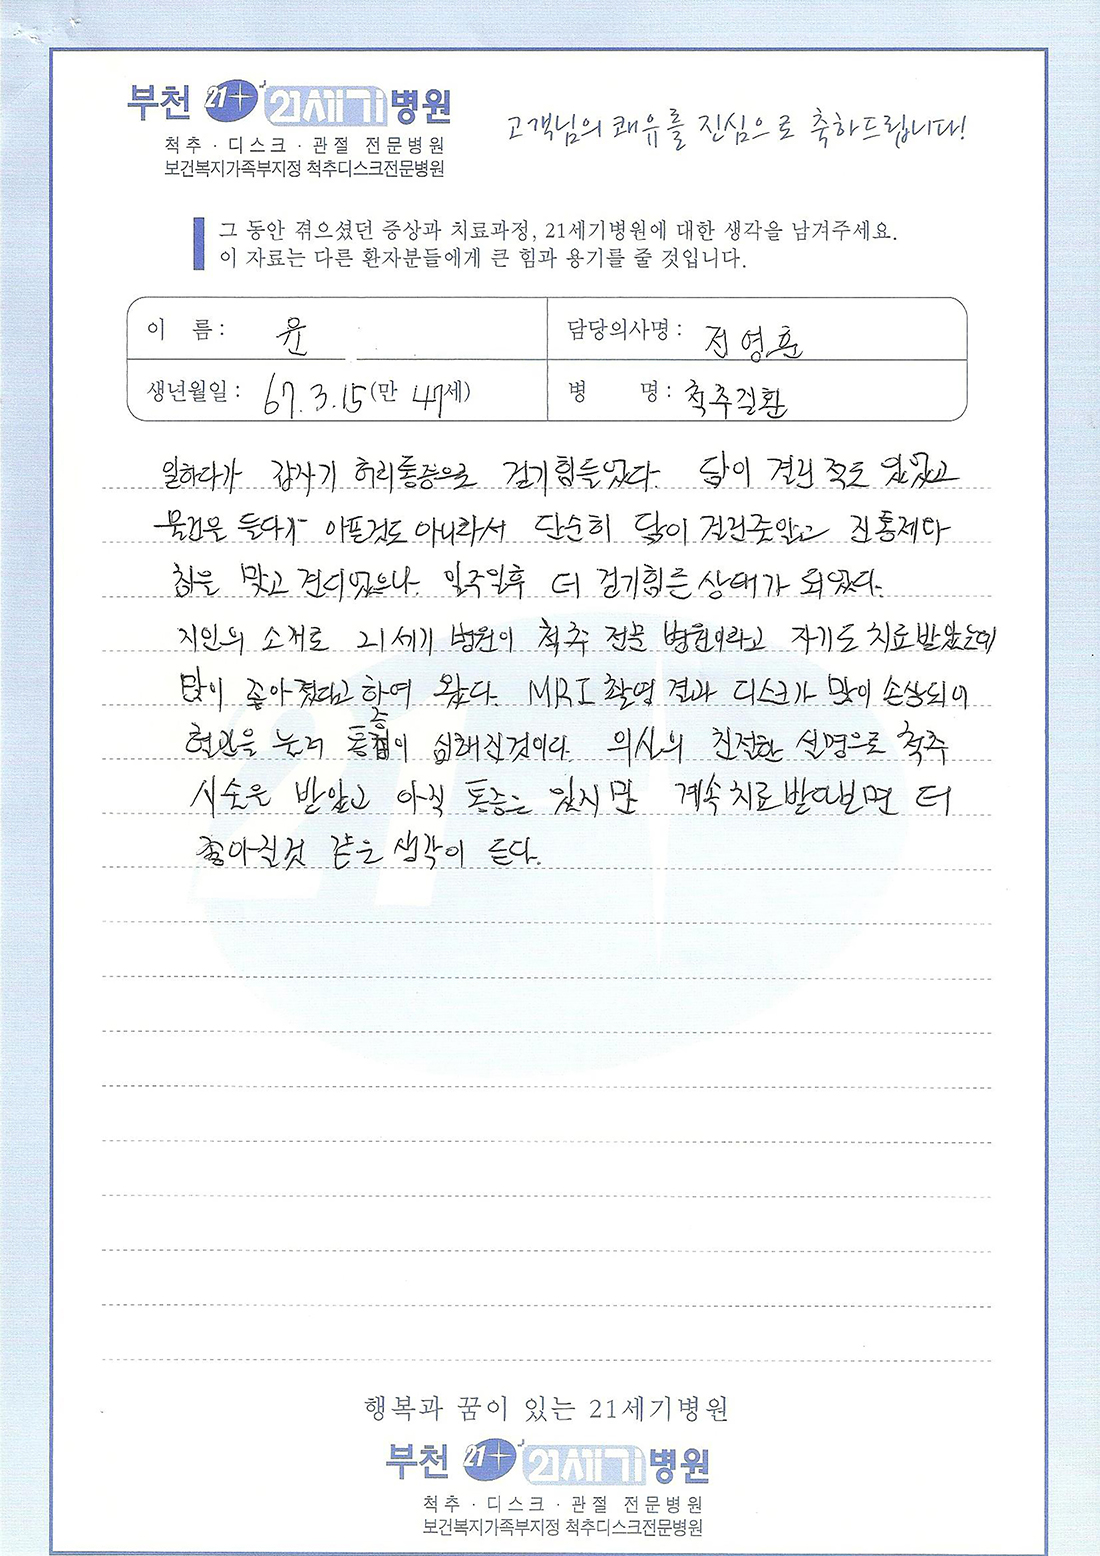 부천 21+ 21세기병원
척추 · 디스크 · 관절 전문병원
보건복지가족부지정 척추디스크전문병원
고객님의 쾌유를 진심으로 축하드립니다!
그 동안 겪으셨던 증상과 치료과정, 21세기병원에 대한 생각을 남겨주세요.
이 자료는 다른 환자분들에게 큰 힘과 용기를 줄 것입니다.
이 름 : 윤
담당의사명 : 전영훈
생년월일 : 67. 3. 15 (만 47세)
병 명 : 척추질환
일하다가 갑자기 허리통증으로 걷기힘들었다. 담이 결린 적도 있었고
물건을 들다가 아픈것도 아니라서 단순히 담이 걸린줄알고 진통제나
침을 맞고 견디었으나. 일주일후 더 걷기힘든 상태가 되었다.
지인의 소개로 21세기 병원이 척추 전문 병원이라고 자기도 치료받았는데
많이 좋아졌다고 하여 왔다. MRI 촬영 결과 디스크가 많이 손상되어
혈관을 눌러 통증이 심해진것이다. 의사의 친절한 설명으로 척추
시술을 받았고 아직 통증은 있지만 계속치료받다보면 더
좋아질것 같은 생각이 든다.
21
행복과 꿈이 있는 21세기병원
부천 21+ 21세기병원
척추 · 디스크 · 관절 전문병원
보건복지가족부지정 척추디스크전문병원